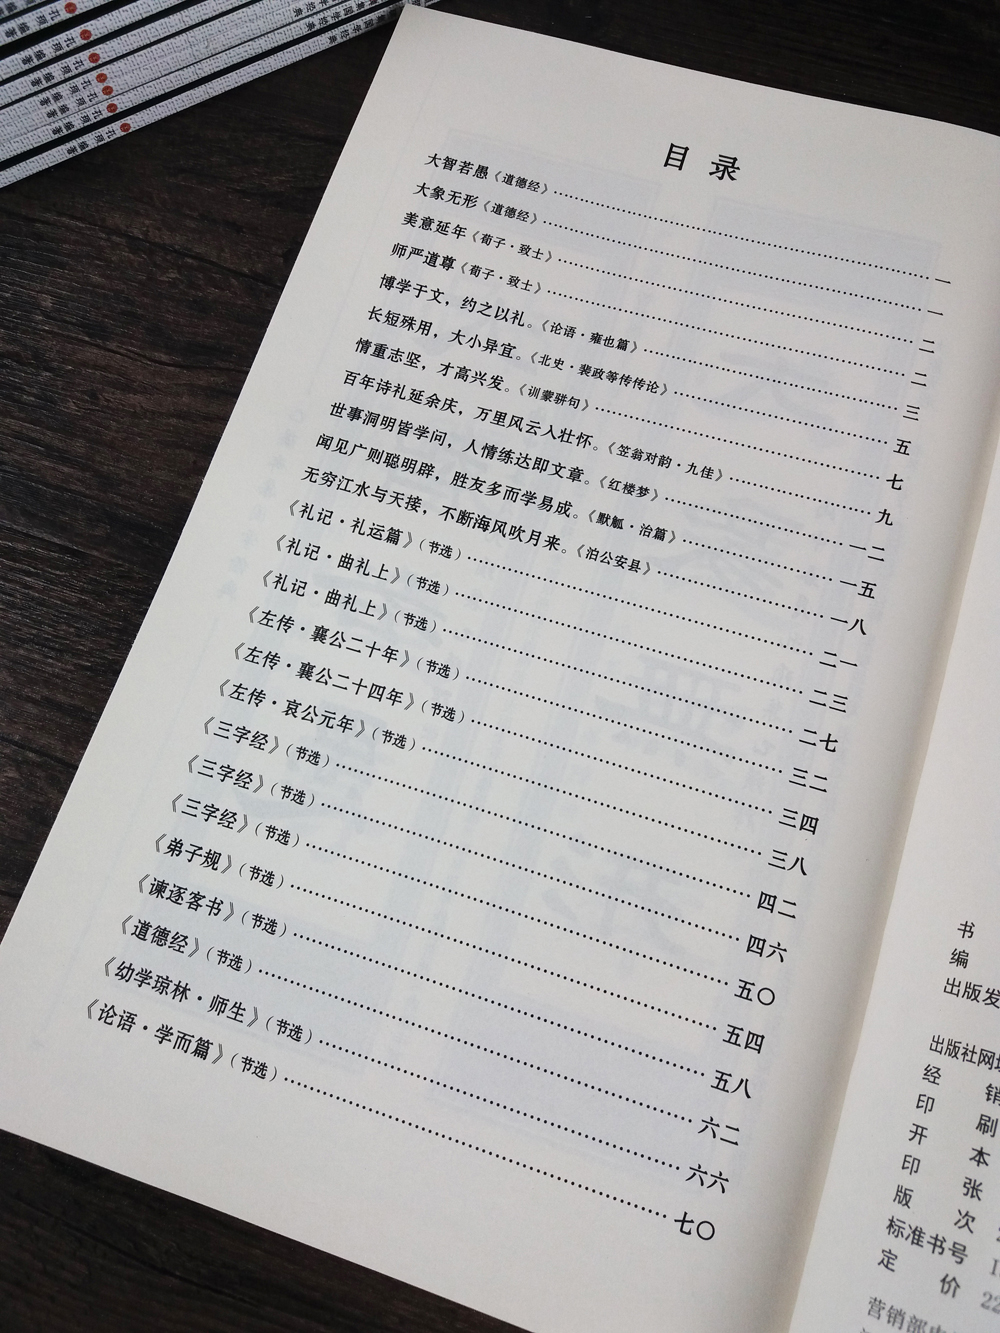 目录
大智若愚《道德经》…………一
大象无形《道德经》…………一
美意延年《荀子·致士》…………二
师严道尊《荀子·致士》…………二
博学于文，约之以礼。《论语·雍也篇》…………三
长短殊用，大小异宜。《北史·裴政等传传论》…………五
情重志坚，才高兴发。《训蒙骈句》…………七
百年诗礼延余庆，万里风云入壮怀。《笠翁对韵·九佳》…………九
世事洞明皆学问，人情练达即文章。《红楼梦》…………一二
闻见广则聪明辟，胜友多而学易成。《默觚·治篇》…………一五
无穷江水与天接，不断海风吹月来。《泊公安县》…………一八
《礼记·礼运篇》（节选）…………二一
《礼记·曲礼上》（节选）…………二三
《礼记·曲礼上》（节选）…………二七
《左传·襄公二十年》（节选）…………三二
《左传·襄公二十四年》（节选）…………三四
《左传·哀公元年》（节选）…………三八
《三字经》（节选）…………四二
《三字经》（节选）…………四六
《三字经》（节选）…………五〇
《弟子规》（节选）…………五四
《谏逐客书》（节选）…………五八
《道德经》（节选）…………六二
《幼学琼林·师生》（节选）…………六六
《论语·学而篇》（节选）…………七〇
书
编
出版发
出版社网
经 销
印 刷
开 本
印 张
版 次
标准书号
定 价 22
营销部